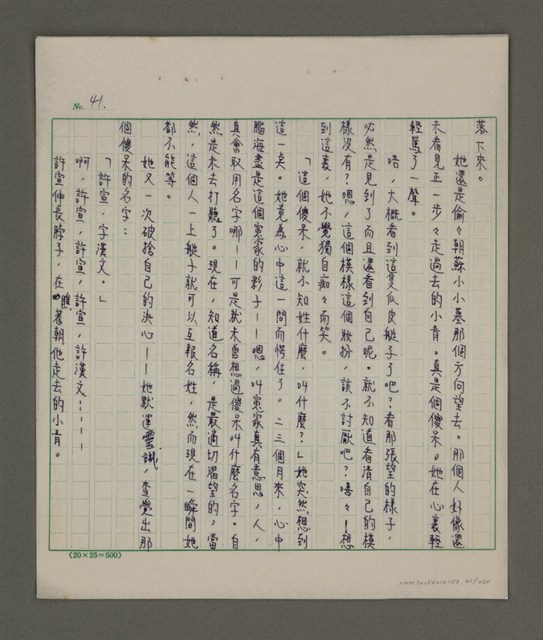 No. 41.
落下來。
她還是偷々朝蘇小小墓那個方向望去。那個人好像還
未看見正一步々走過去的小青。真是個傻呆。她在心裏輕
輕罵了一聲。
唔,大概看到這隻瓜皮艇子了吧?看那張望的樣子,
必然是見到了而且還看到自己呢。就不知道看清自己的模
樣沒有?嗯,這個模樣這個妝扮,該不討厭吧?嘻々!想
到這裏,她不覺獨自痴々而笑。
「這個傻呆,就不知姓什麼,叫什麼?」她突然想到
這一点。她竟為心中這一問而愕住了。二三個月來,心中
腦海盡是這個冤家的影子——嗯,叫冤家真有意思,人,
真會取用名字哪——可是就未曾想過傻呆叫什麼名字。自
然是未去打聽了。現在,知道名稱,是最適切渴望的,當
然,這個人一上艇子就可以互報名姓,然而現在一瞬間她
都不能等。
她又一次破捨自己的決心——她默運靈識,查覺出那
個傻呆的名字:
「許宣,字漢文。」
啊,許宣,許宣,許宣,許漢文……
許宣伸長脖子,在瞧著朝他走去的小青。
(20×25=500)